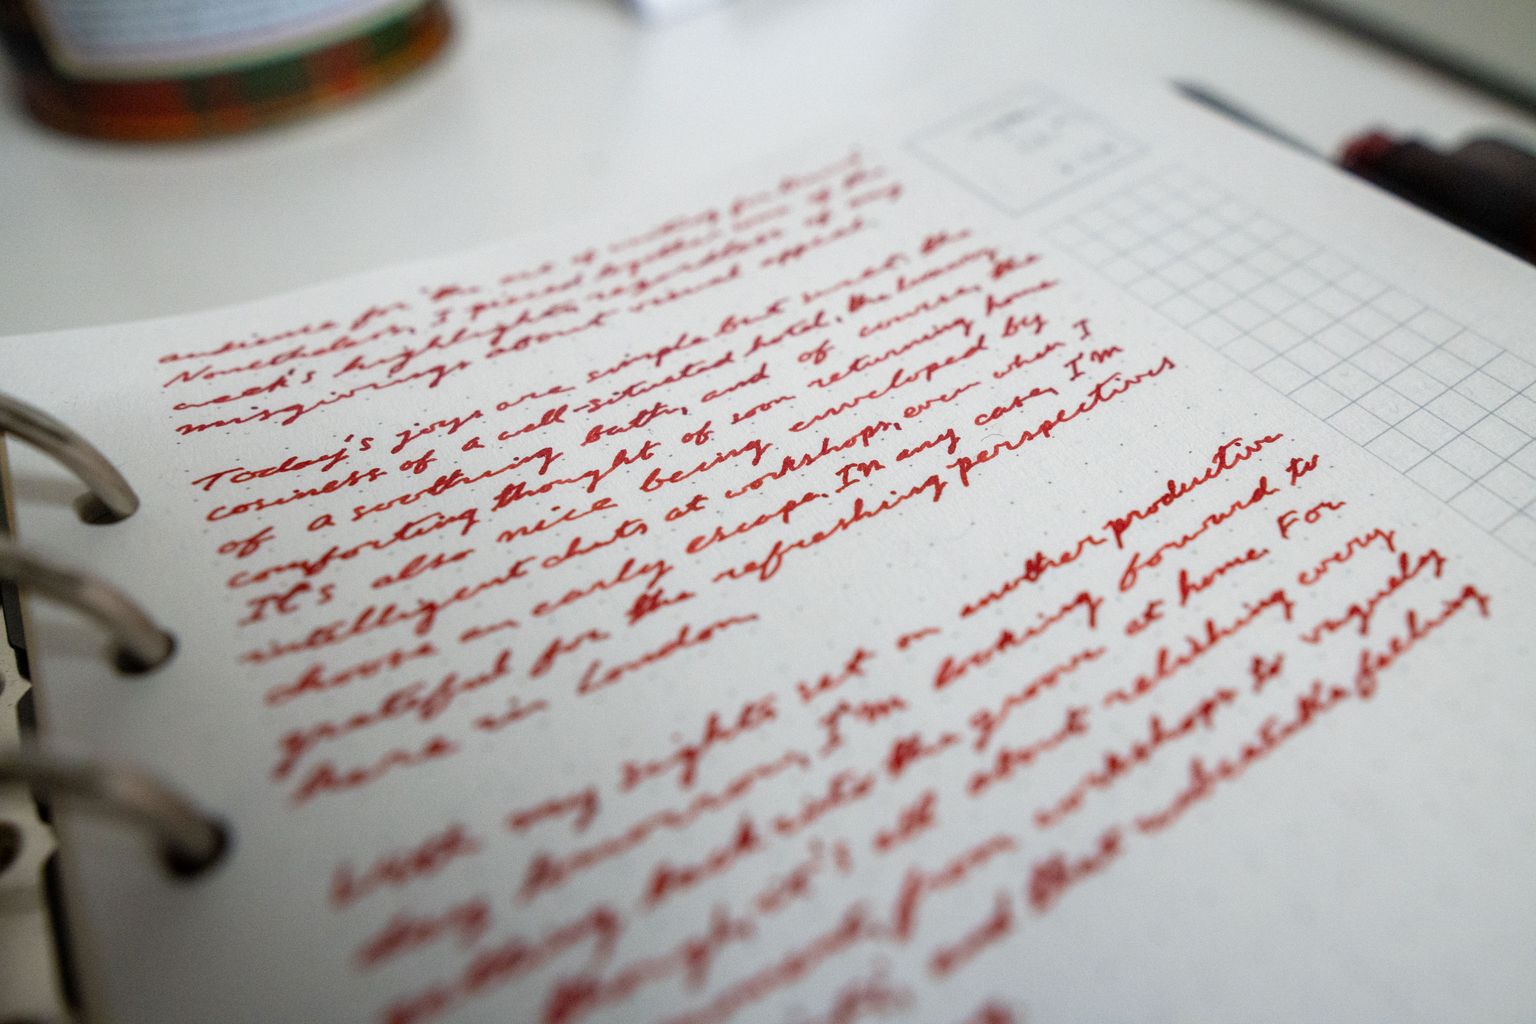 audience for the art of
Nonetheless, I pieced together some of the
week's highlights, regardless of my
misgivings about visual appeal.
Today's joys are simple but sweet: the
cosiness of a well-situated hotel, the luxury
of a soothing bath, and of course, the
comforting thought of soon returning home
It's also nice being enveloped by
intelligent chats at workshops, even when I
choose an early escape. In any case, I'm
grateful for the refreshing perspectives
here in London.
With my sights set on another productive
day tomorrow, I'm looking forward to
getting back into the groove at home. For
though, it's all about relishing every
moment, from workshops to vaguely
and that unbeatable feeling